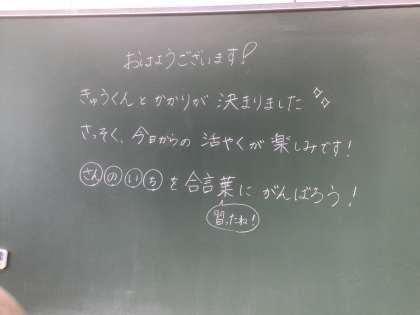 おはようございます!
きゅうくんとかかりが 決まりました
さっそく、今日からの 活やくが 楽しみです!
さんのいち を 合言葉に がんばろう!
習ったね!